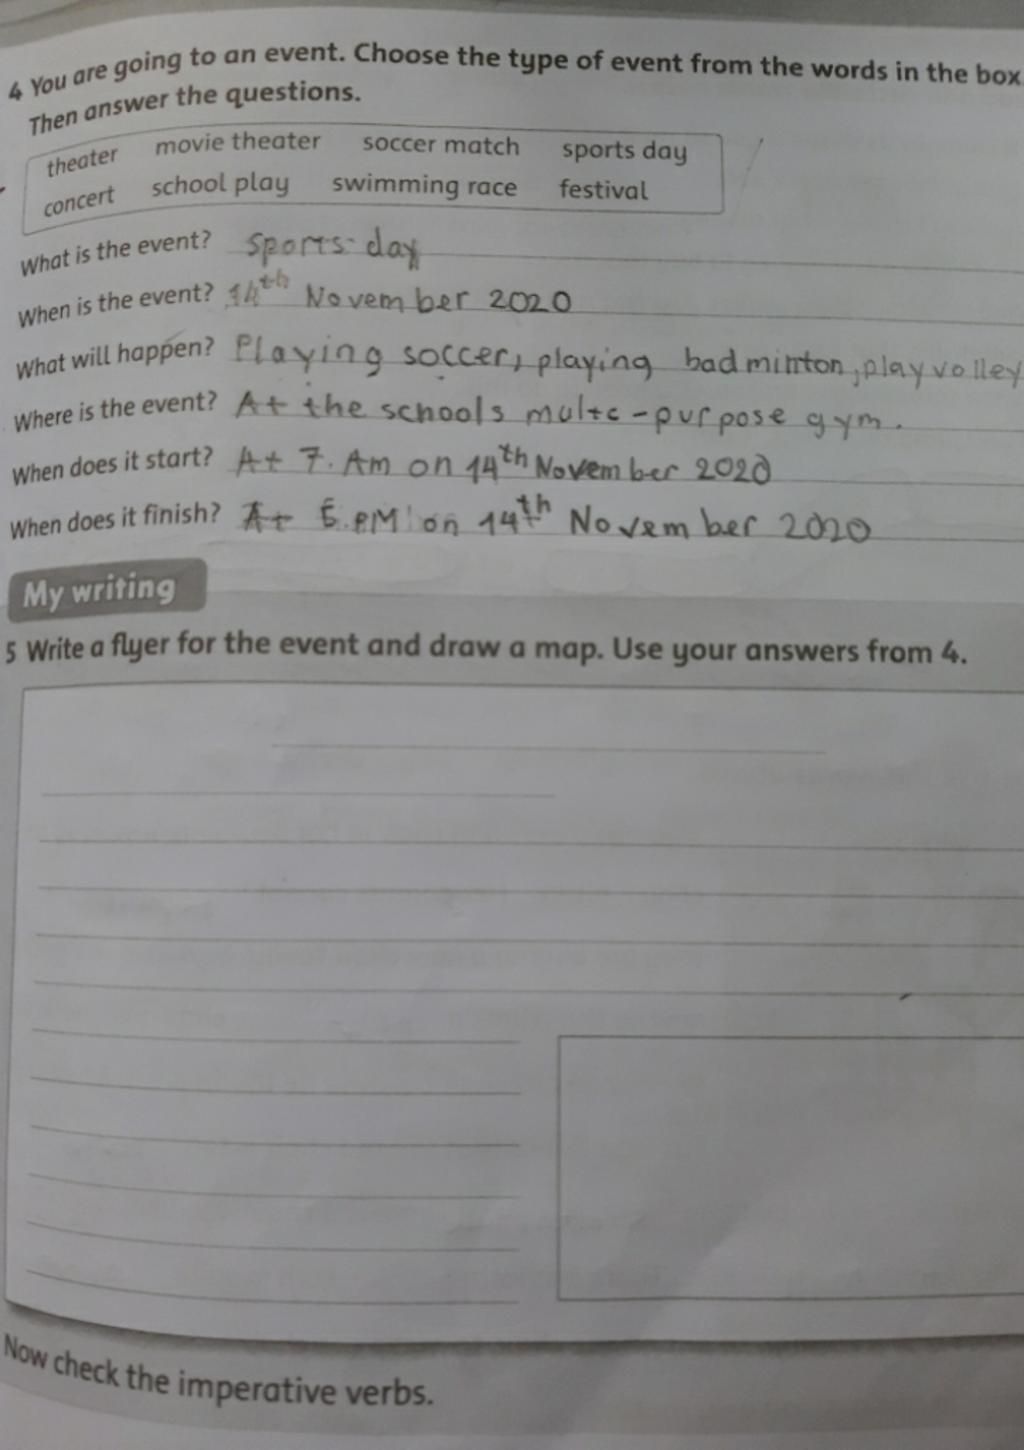 4 You are going to an event. Choose the type of event from the words in the box.
Then answer the questions.
theater movie theater soccer match sports day
concert school play swimming race festival
What is the event? sports day
When is the event? 14th November 2020
What will happen? Playing soccer, playing badminton, play volley
Where is the event? At the schools multc-purpose gym.
When does it start? At 7. Am on 14th November 2020
When does it finish? At 5.PM on 14th November 2020
My writing
5 Write a flyer for the event and draw a map. Use your answers from 4.
Now check the imperative verbs.